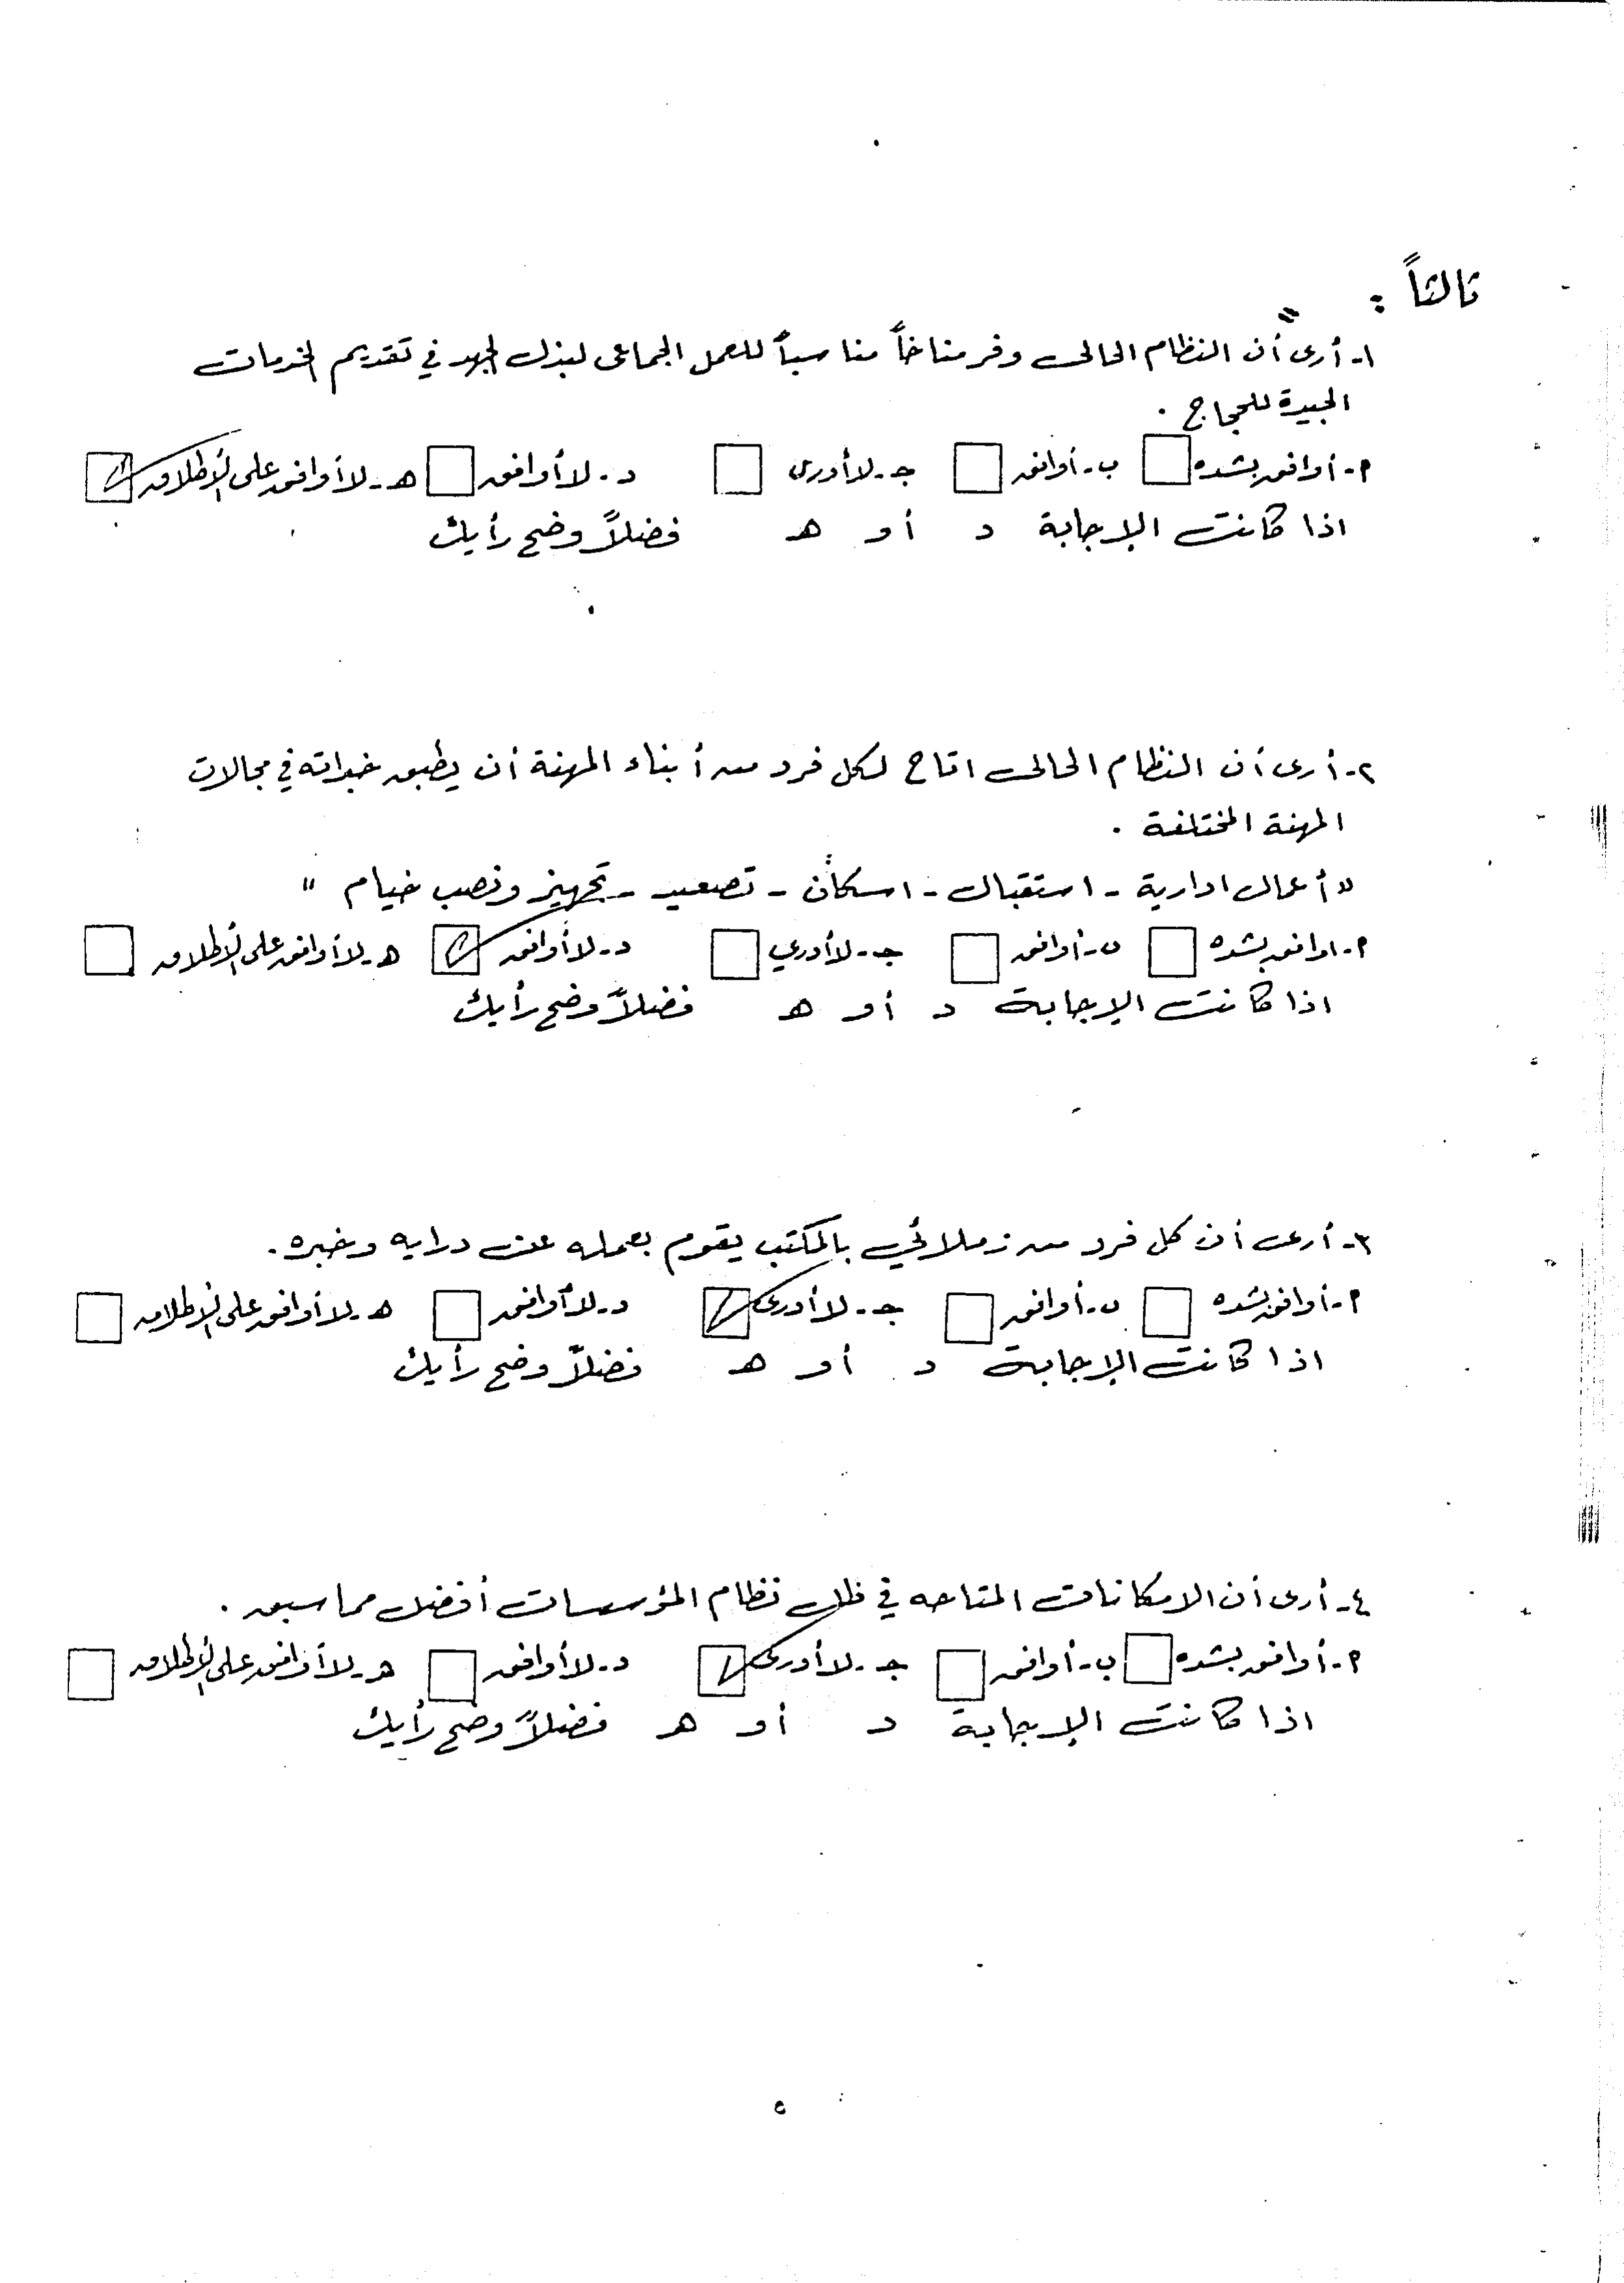 ثالثاً :
١- أرى أن النظام الحالى وفر مناخاً مناسباً للعمل الجماعى لبذل الجهد في تقديم الخدمات
الجيدة للحجاج .
م- أوافق بشده ب- أوافق جـ- لا أدرى د- لا أوافق هـ- لا أوافق على الإطلاق
اذا كانت الإجابة د أو هـ فضلاً وضح رأيك
٢- أرى أن النظام الحالى اتاح لكل فرد من أبناء المهنة أن يطبق خبراته في مجالات
المهنة المختلفة .
" أعمال ادارية - استقبال - اسكان - تصعيد - تجهيز ونصب خيام "
م- اوافق بشده ب- أوافق جـ- لا أدري د- لا أوافق هـ- لا أوافق على الإطلاق
اذا كانت الإجابة د أو هـ فضلاً وضح رأيك
٣- أرى أن كل فرد من زملائي بالمكتب يقوم بعمله عن درايه وخبره .
م- أوافق بشده ب- أوافق جـ- لا أدرى د- لا أوافق هـ- لا أوافق على الإطلاق
اذا كانت الإجابة د أو هـ فضلاً وضح رأيك
٤- أرى أن الامكانات المتاحه في ظل نظام المؤسسات أفضل مما سبق .
م- أوافق بشده ب- أوافق جـ- لا أدرى د- لا أوافق هـ- لا أوافق على الإطلاق
اذا كانت الإجابة د أو هـ فضلاً وضح رأيك
٥